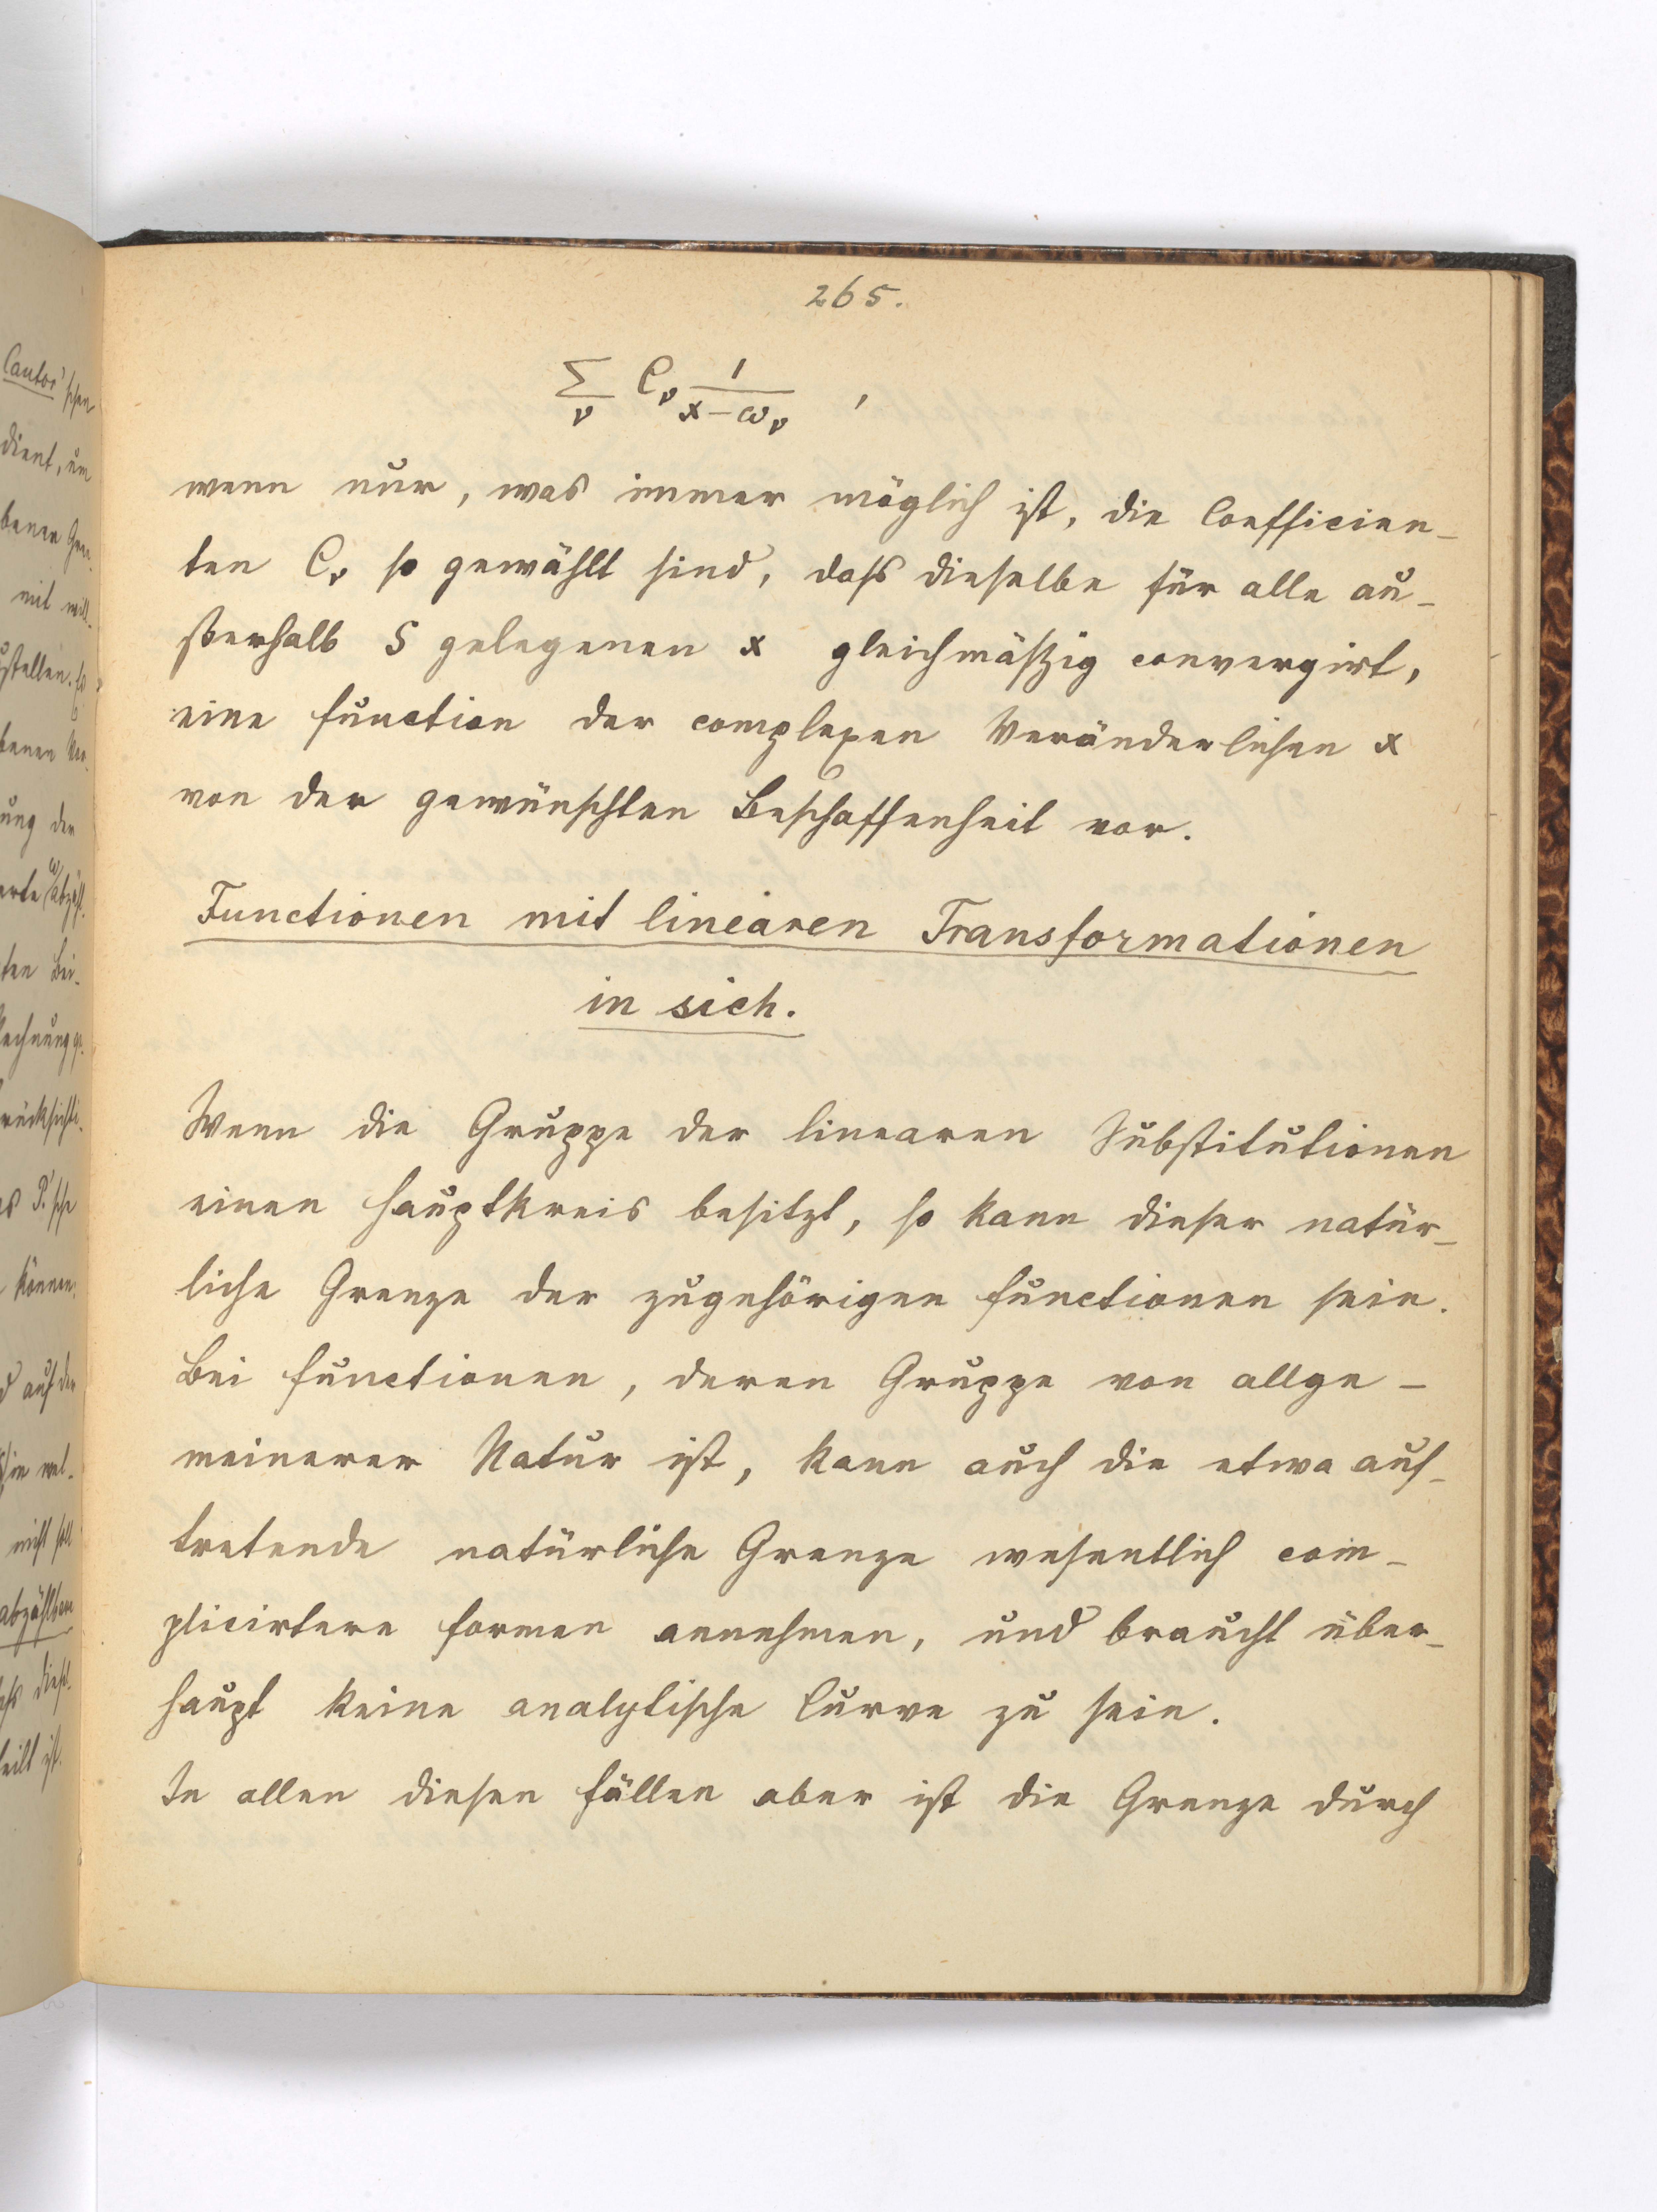 265.
∑_ν C_ν 1/(x−ω_ν) ,
wenn nur, was immer möglich ist, die Coefficien-
ten C_ν so gewählt sind, dass dieselbe für alle au-
ßerhalb S gelegenen x gleichmäßig convergirt,
eine Function der complexen Veränderlichen x
von der gewünschten Beschaffenheit vor.
Functionen mit linearen Transformationen
in sich.
Wenn die Gruppe der linearen Substitutionen
einen Hauptkreis besitzt, so kann dieser natür-
liche Grenze der zugehörigen Functionen sein.
Bei Functionen, deren Gruppe von allge-
meinerer Natur ist, kann auch die etwa auf-
tretende natürliche Grenze wesentlich com-
plicirtere Formen annehmen, und braucht über-
haupt keine analytische Curve zu sein.
In allen diesen Fällen aber ist die Grenze durch